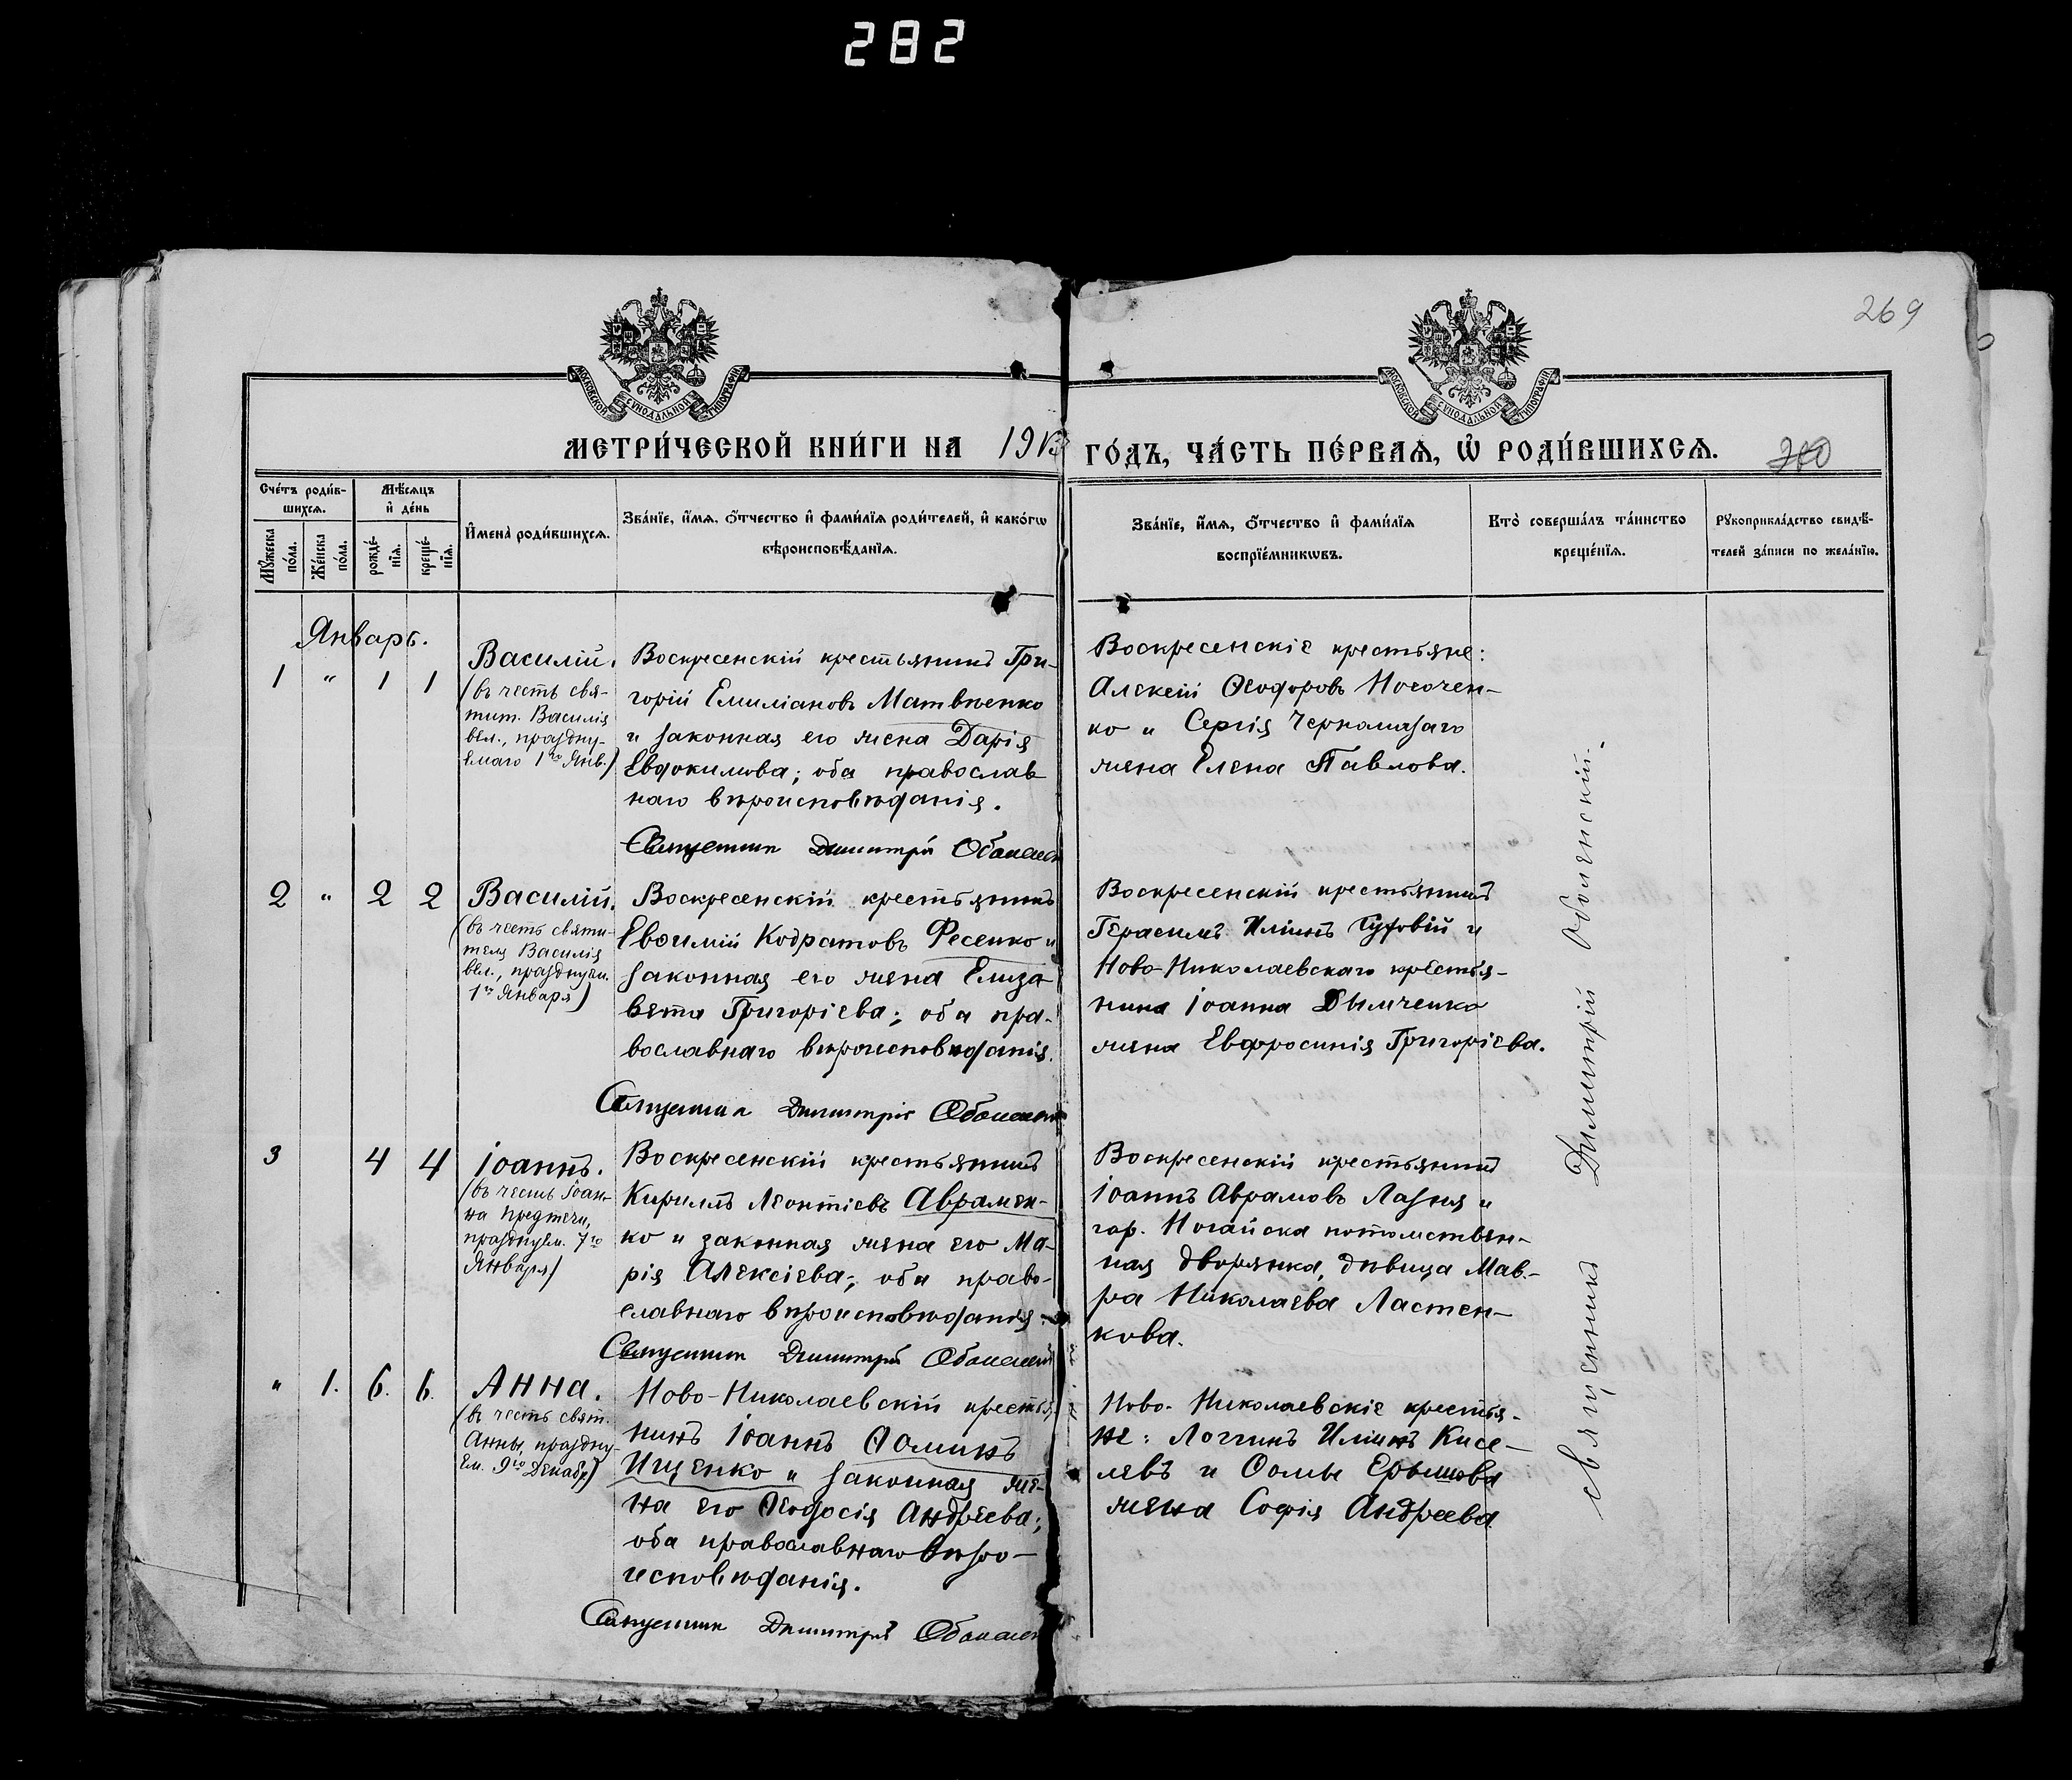 282
269
МОСКОВСКОЙ СУНОДАЛЬНОЙ ТИПОГРАФІИ
МОСКОВСКОЙ СУНОДАЛЬНОЙ ТИПОГРАФІИ
МЕТРИ́ЧЕСКОЙ КНИ́ГИ НА 1913 ГО́ДЪ, ЧА́СТЬ ПЕ́РВАѦ, Ѡ҆ РОДИ́ВШИХСѦ.
Сче́тъ роди́в-
шихсѧ.
Мꙋ́жеска по́ла.
Же́нска по́ла.
Мѣ́сѧцъ
и҆ де́нь
рожде́-
нїѧ.
креще́-
нїѧ.
И҆мена̀ роди́вшихсѧ.
Зва́нїе, и҆́мѧ, ѻ҆́тчество и҆ фами́лїѧ роди́телей, и҆ како́гѡ
вѣроисповѣ́данїѧ.
Зва́нїе, и҆́мѧ, ѻ҆́тчество и҆ фами́лїѧ
воспрїе́мникѡвъ.
Кто̀ соверша́лъ та́инство
креще́нїѧ.
Рꙋкоприкла́дство свидѣ́-
телей за́писи по жела́нїю.
Январь.
1 " 1 1
Василій.
(въ честь свя-
тит. Василія
вел., праздну-
емаго 1го Янв.)
Воскресенскій крестьянинъ Гри-
горій Емиліановъ Матвѣенко
и законная его жена Дарія
Евдокимова; оба православ
наго вѣроисповѣданія.
Священник Димитрій Оболенск
Воскресенскіе крестьяне:
Алексій Ѳеодоровъ Носочен-
ко и Сергія Черномазаго
жена Елена Павлова.
2 " 2 2
Василій.
(въ честь святи-
теля Василія
вел., празднуем.
1го Января)
Воскресенскій крестьянинъ
Евѳимій Кодратовъ Фесенко и
законная его жена Елиза
вета Григоріева; оба пра-
вославнаго вѣроисповѣданія.
Священник Димитрій Оболенск
Воскресенскій крестьянинъ
Герасимъ Иліинъ Гузовій и
Ново-Николаевскаго крестья-
нина Іоанна Дымченко
жена Евфросинія Григоріева.
3 4 4
Іоаннъ.
(въ честь Іоан-
на Предтечи,
празднуем. 7го
Января)
Воскресенскій крестьянинъ
Кириллъ Леонтіевъ Аврамен-
ко и законная жена его Ма-
рія Алексіева; оба право-
славнаго вѣроисповѣданія.
Священник Димитрій Оболенскій
Воскресенскій крестьянинъ
Іоаннъ Аврамовъ Лазня и
гор. Ногайска потомствен-
ная дворянка, дѣвица Мав.-
ра Николаева Ластен-
кова.
" 1. 6. 6.
Анна.
(въ честь свят.
Анны, праздну-
ем. 9го Декабр)
Ново-Николаевскій крестья
нинъ Іоаннъ Ѳоминъ
Ищенко и законная же-
на его Ѳеодосія Андреева;
оба православнаго вѣро-
исповѣданія.
Священник Димитрій Оболен
Ново-Николаевскіе крестья-
не: Логгинъ Иліинъ Кисе-
левъ и Ѳомы Ерышова
жена Софія Андреева
священникъ Димитрій Оболенскій.